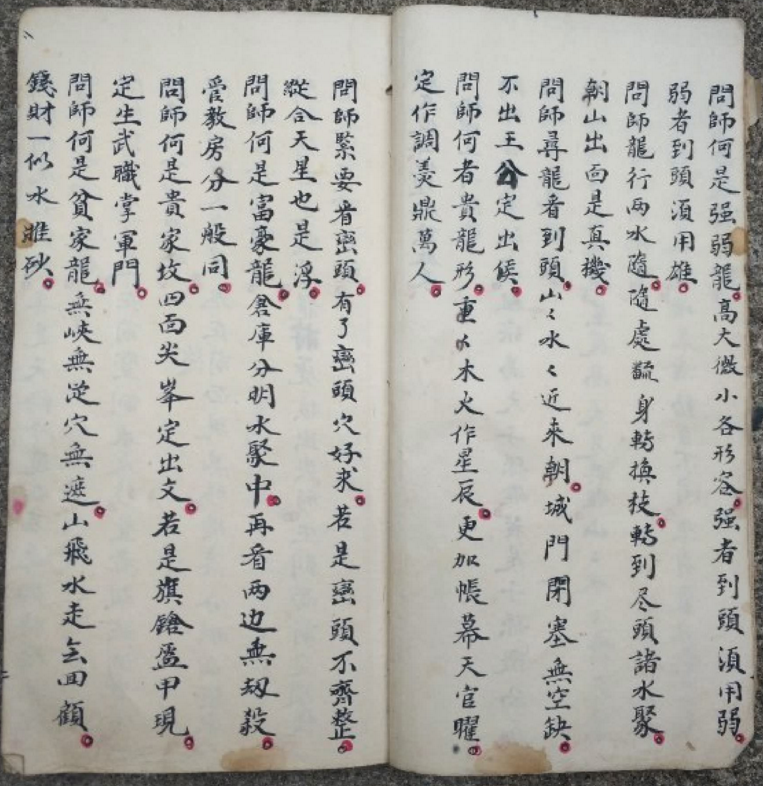 問師何是强弱龍高大微小各形容强者到頭湏用弱
弱者到頭湏用雄
問師龍行兩水隨隨處翻身轉換枝轉到尽頭諸水聚
朝山出面是真機
問師尋龍看到頭山々水々近来朝城門閉塞無空缺
不出王公定出候
問師何者貴龍形重山木火作星辰更加帳幕天官曜
定作調羹鼎萬人
問師緊要看巒頭有了巒頭穴好求若是巒頭不齊整
縱合天星也是浮
問師何是富豪龍倉庫分明水聚中再看两边無刼殺
管教房分一般同
問師何是貴家坟四面尖峯定出文若是旗鎗盔甲現
定生武職掌軍門
問師何是貧家龍無峽無從穴無遮山飛水走去回顧
錢財一似水推砂